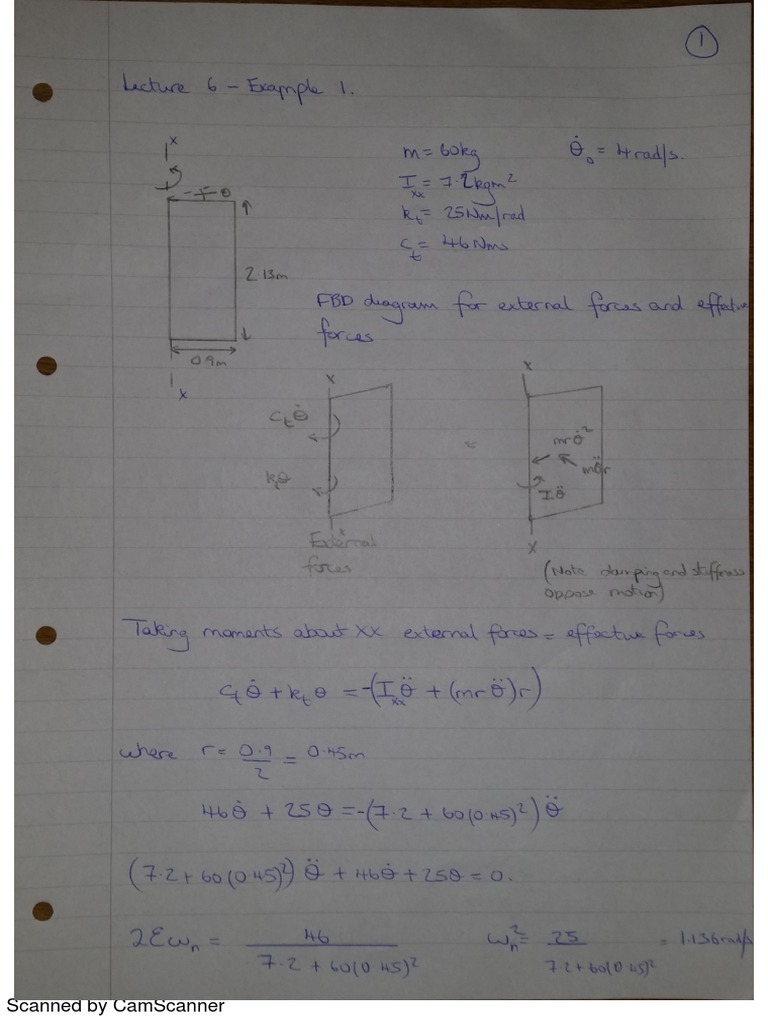 1
Lecture 6 - Example 1.
x
θ
2.13m
0.9m
x
m = 60kg
θ̇₀ = 4 rad/s.
I_xx = 7.2kgm²
k_t = 25Nm/rad
c_t = 46Nms
FBD diagram for external forces and effective
forces
x
c_t θ̇
k_t θ
x
External
forces
=
x
mrθ̇²
mθ̈r
Iθ̈
x
(Note damping and stiffness
oppose motion)
Taking moments about XX external forces = effective forces
c_t θ̇ + k_t θ = -(I_xx θ̈ + (mr θ̈)r)
where r = 0.9/2 = 0.45m
46θ̇ + 25θ = -(7.2 + 60(0.45)²) θ̈
(7.2 + 60(0.45)²) θ̈ + 46θ̇ + 25θ = 0.
2εω_n = 46/(7.2 + 60(0.45)²)
ω_n² = 25/(7.2 + 60(0.45)²) = 1.136rad/s
Scanned by CamScanner